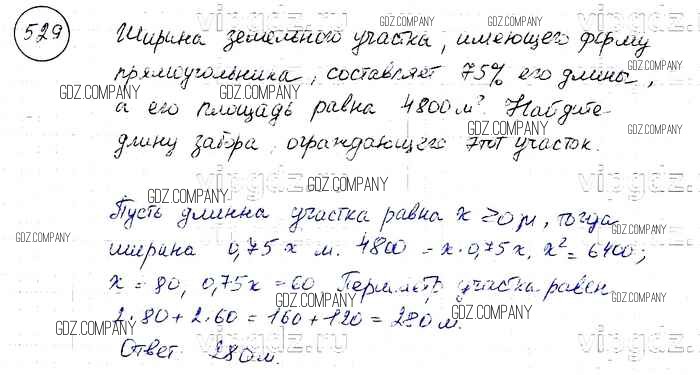 529
Ширина земельного участка, имеющего форму
прямоугольника, составляет 75% его длины,
а его площадь равна 4800 м². Найдите
длину забора, ограждающего этот участок.
Пусть длинна участка равна x > 0 м, тогда
ширина 0,75x м. 4800 = x·0,75x, x² = 6400;
x = 80, 0,75x = 60 Периметр участка равен
2·80 + 2·60 = 160 + 120 = 280 м.
Ответ 280 м.
GDZ.COMPANY
vipgdz.ru